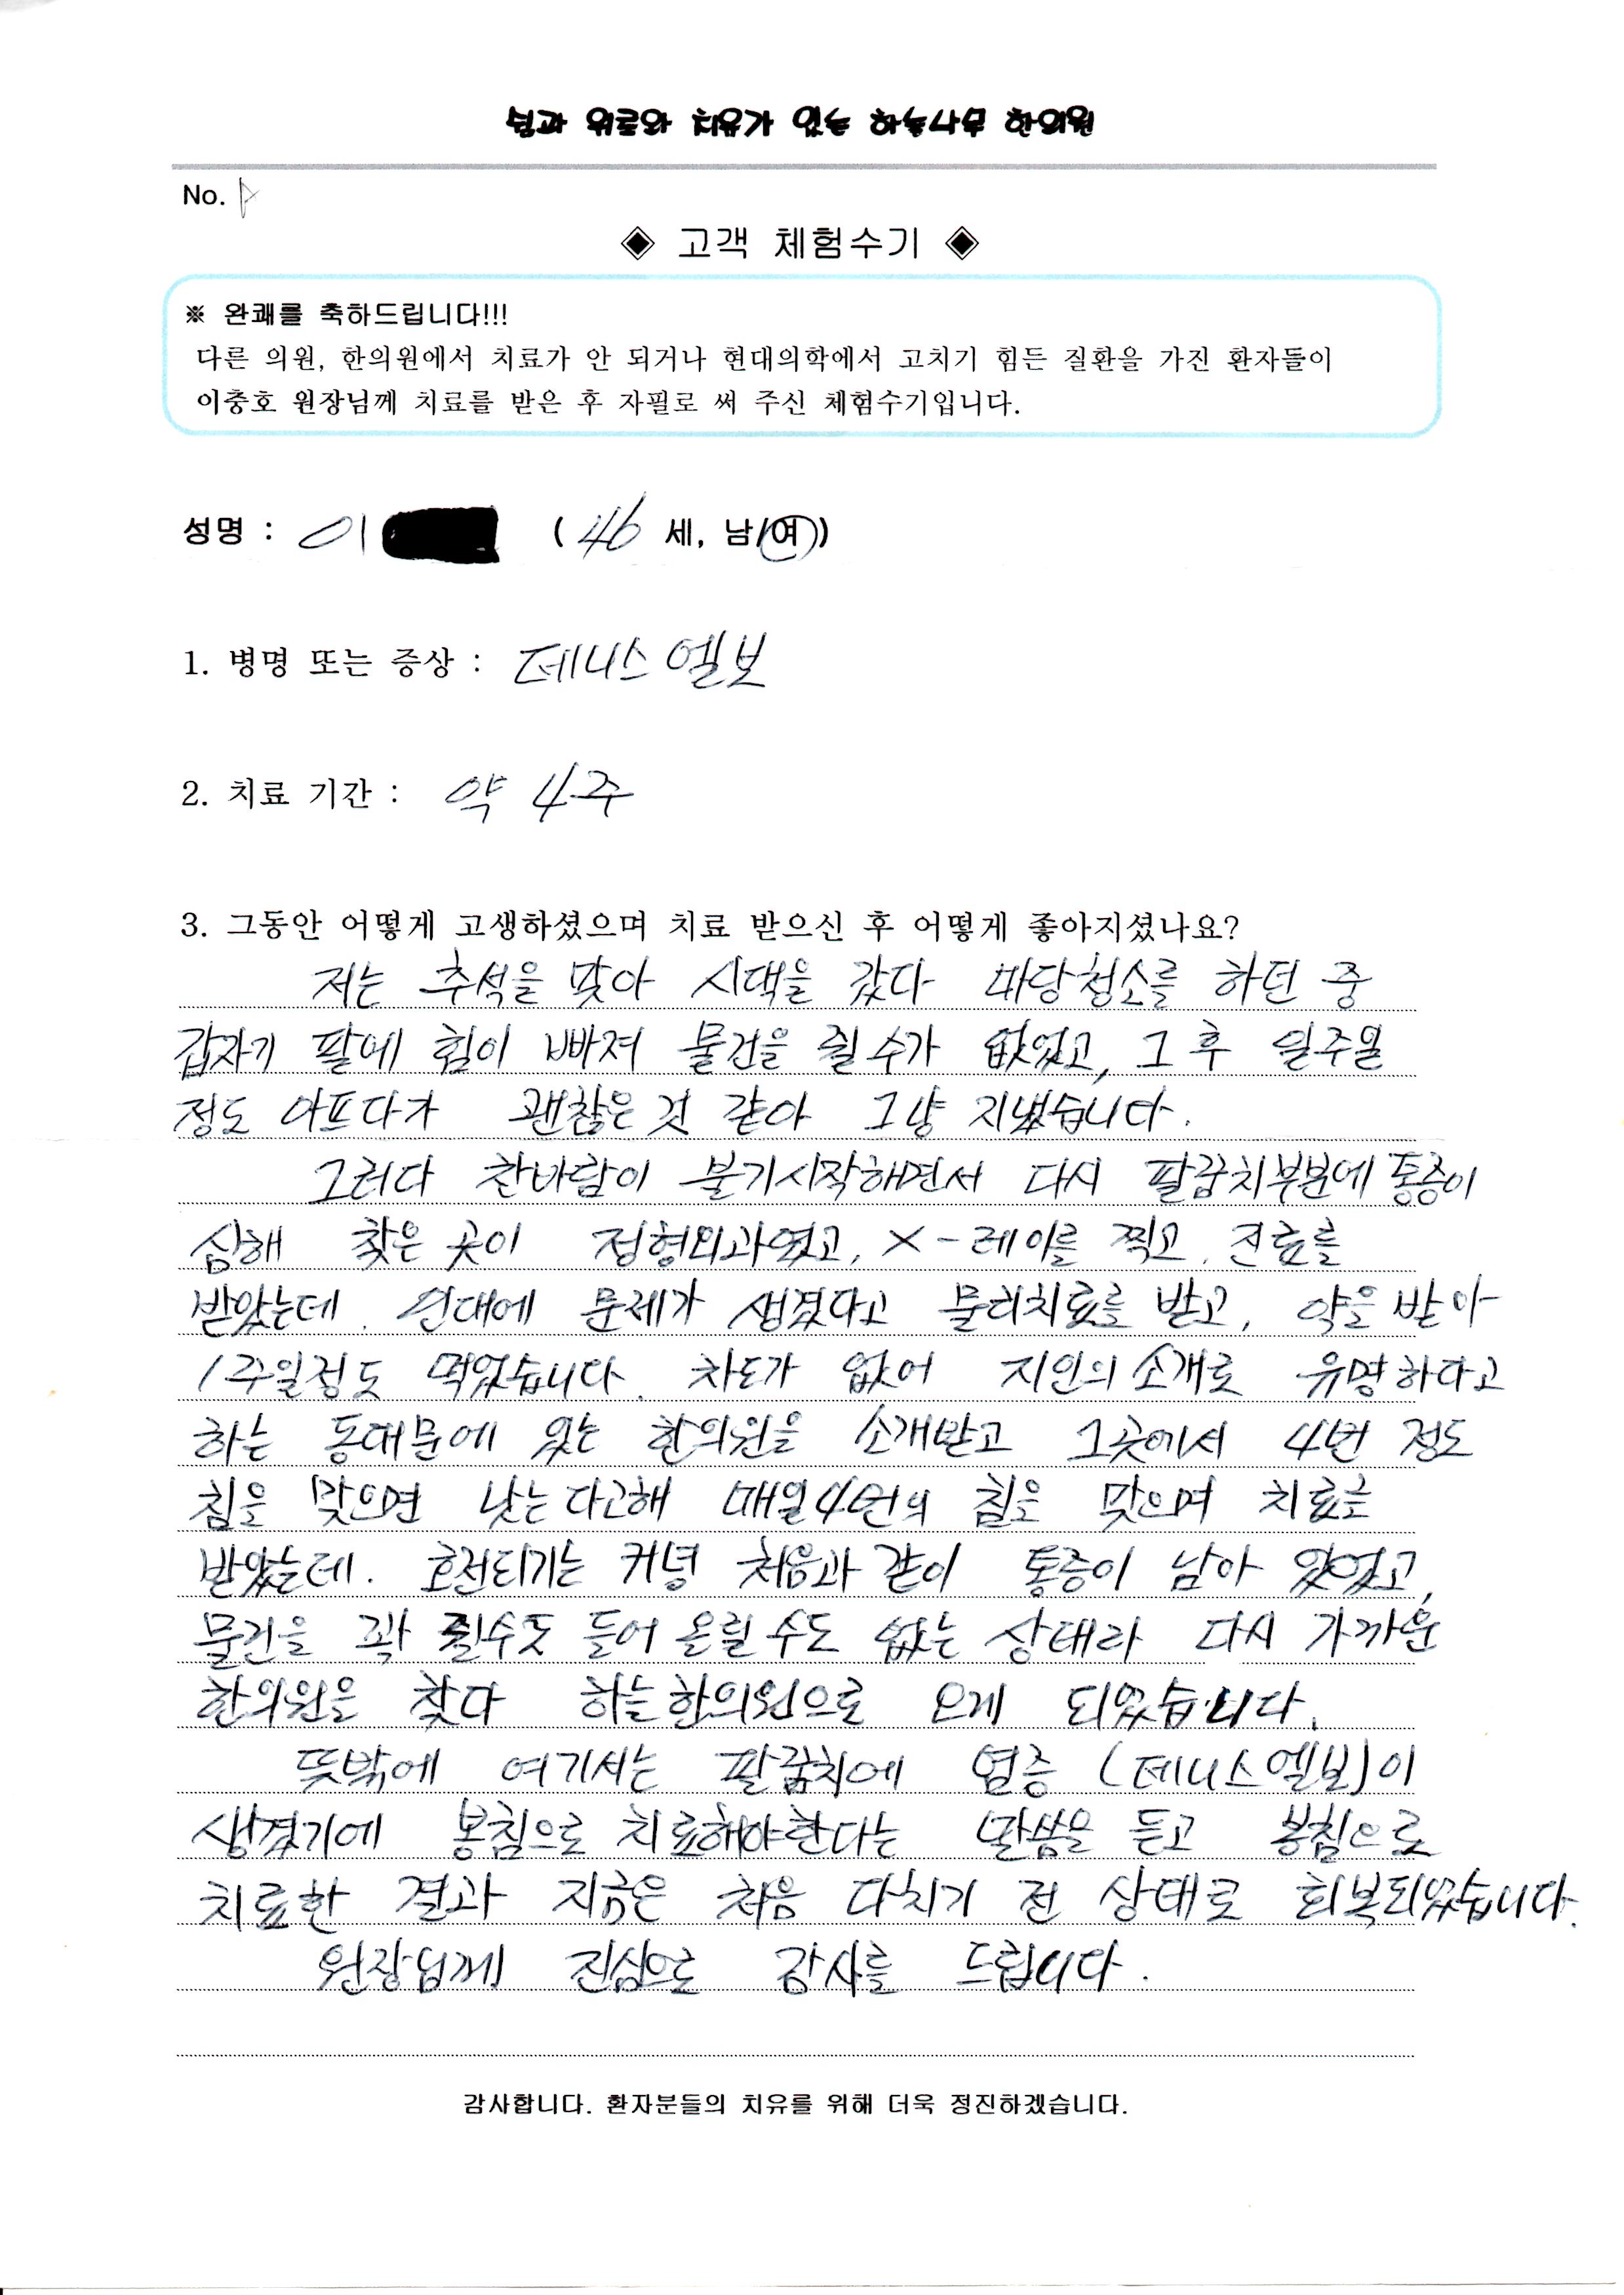 쉼과 위로와 치유가 있는 하늘나무 한의원
No.
◈ 고객 체험수기 ◈
※ 완쾌를 축하드립니다!!!
다른 의원, 한의원에서 치료가 안 되거나 현대의학에서 고치기 힘든 질환을 가진 환자들이
이충호 원장님께 치료를 받은 후 자필로 써 주신 체험수기입니다.
성명 : 이 ( 46 세, 남/여)
1. 병명 또는 증상 : 테니스 엘보
2. 치료 기간 : 약 4주
3. 그동안 어떻게 고생하셨으며 치료 받으신 후 어떻게 좋아지셨나요?
저는 추석을 맞아 시댁을 갔다 마당청소를 하던 중
갑자기 팔에 힘이 빠져 물건을 쥘 수가 없었고, 그 후 일주일
정도 아프다가 괜찮은 것 같아 그냥 지냈습니다.
그러다 찬바람이 불기시작해면서 다시 팔꿈치부분에 통증이
심해 찾은 곳이 정형외과였고, X-레이를 찍고, 진료를
받았는데. 인대에 문제가 생겼다고 물리치료를 받고, 약을 받아
1주일정도 먹었습니다. 차도가 없어 지인의 소개로 유명하다고
하는 동대문에 있는 한의원을 소개받고 그곳에서 4번 정도
침을 맞으면 낫는다고해 매일 4번의 침을 맞으며 치료를
받았는데. 호전되기는 커녕 처음과 같이 통증이 남아 있었고,
물건을 꽉 쥘수도 들어 올릴 수도 없는 상태라 다시 가까운
한의원을 찾다 하늘한의원으로 오게 되었습니다.
뜻밖에 여기서는 팔꿈치에 염증 (테니스엘보)이
생겼기에 봉침으로 치료해야한다는 말씀을 듣고 봉침으로
치료한 결과 지금은 처음 다치기 전 상태로 회복되었습니다.
원장님께 진심으로 감사를 드립니다.
감사합니다. 환자분들의 치유를 위해 더욱 정진하겠습니다.